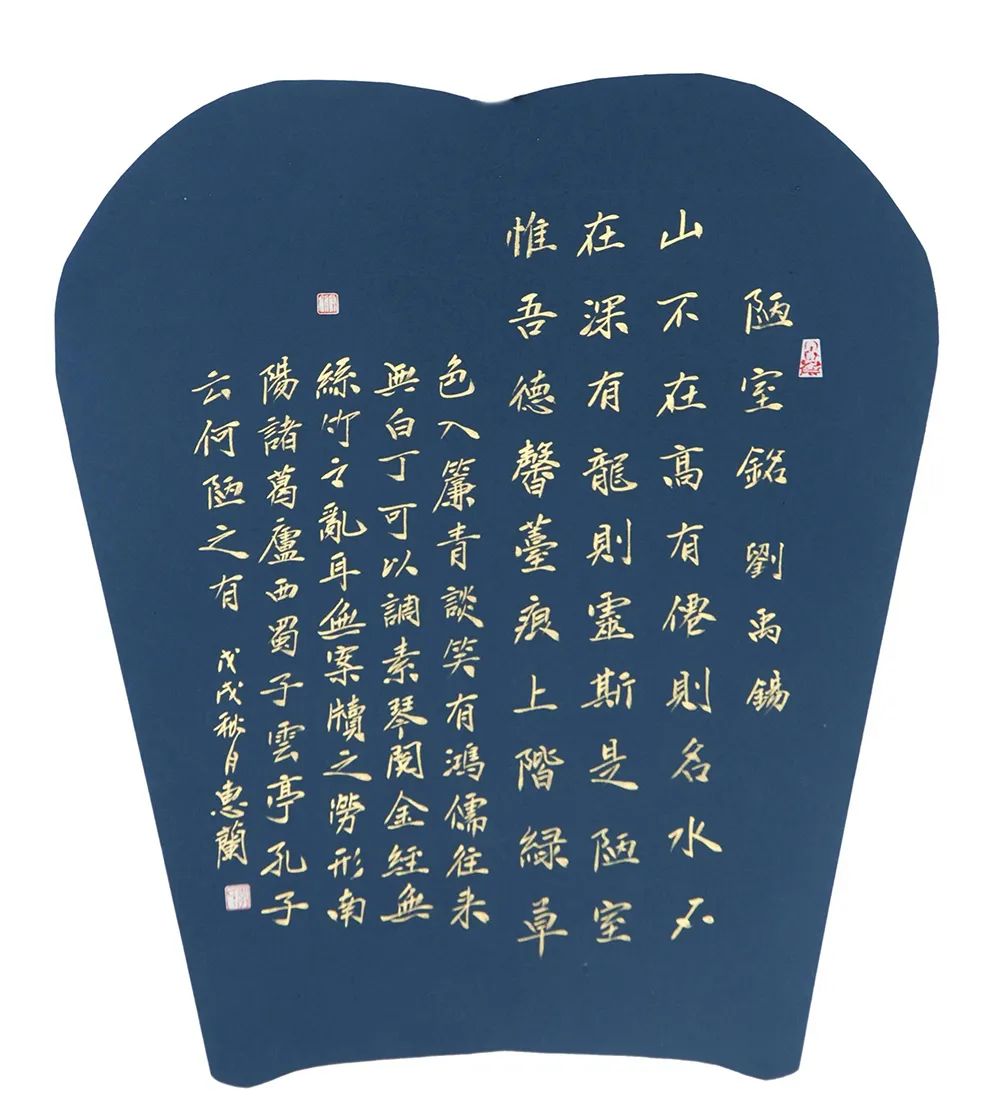 陋室銘 劉禹錫
山不在高有僊則名水不
在深有龍則靈斯是陋室
惟吾德馨薹痕上階緑草
色入簾青談笑有鴻儒往来
無白丁可以調素琴閱金經無
絲竹之亂耳無案牘之勞形南
陽諸葛廬西蜀子雲亭孔子
云何陋之有 戊戌秋月惠蘭